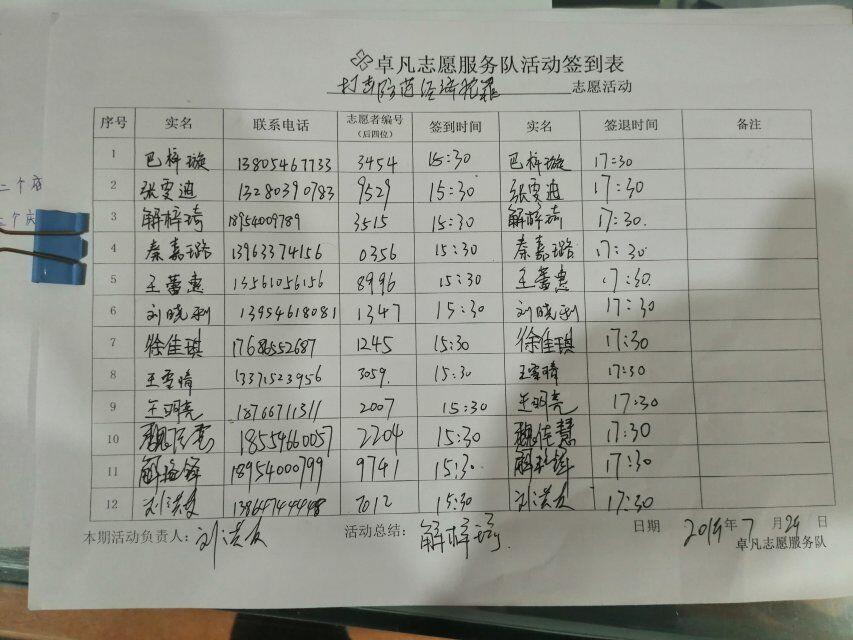 卓凡志愿服务队活动签到表
打击防范经济犯罪 志愿活动
序号 实名 联系电话 志愿者编号（后四位） 签到时间 实名 签退时间 备注
1 巴梓璇 13805467733 3454 15:30 巴梓璇 17:30
2 张雯迪 13280390783 9529 15:30 张雯迪 17:30
3 解梓琦 18954009789 3515 15:30 解梓琦 17:30.
4 秦嘉璐 13963374156 0356 15:30 秦嘉璐 17:30
5 王蕾惠 13561056156 8996 15:30 王蕾惠 17:30.
6 刘晓利 13954618081 1347 15:30 刘晓利 17:30
7 徐佳琪 17686552687 1245 15:30 徐佳琪 17:30
8 王雪晴 13371523956 3059. 15:30 王雪晴 17:30
9 王明亮 18766711311 2007 15:30 王明亮 17:30
10 魏佳慧 18554660057 2204 15:30 魏佳慧 17:30
11 18954000799 9741 15:30. 17:30
12 刘洪友 13864744448 7012 15:30 刘洪友 17:30
本期活动负责人：刘洪友 活动总结：解梓琦. 日期 2019年7月29日
卓凡志愿服务队
二个
二个